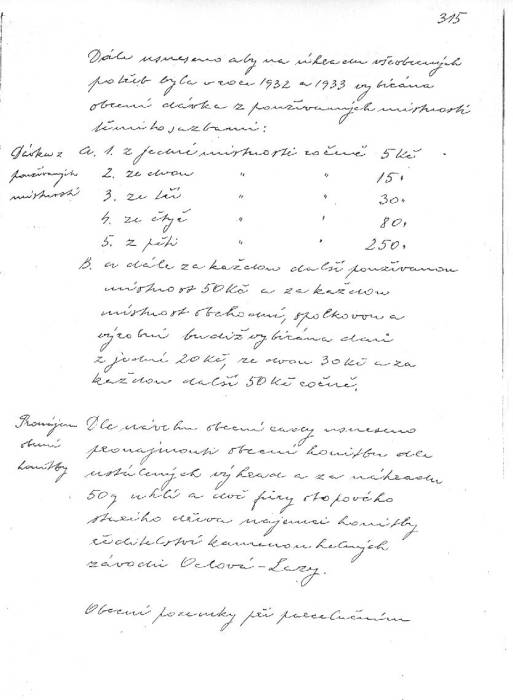 315
Dále usneseno aby na úhradu všeobecných
potřeb byla v roce 1932 a 1933 vybírána
obecní dávka z používaných místností
těmito sazbami:
Dávka z
používaných
místností
A. 1. z jedné místnosti ročně 5 Kč
2. ze dvou " " 15,
3. ze tří " " 30,
4. ze čtyř " " 80,
5. z pěti " " 250,
B. a dále za každou další používanou
místnost 50 Kč a za každou
místnost obchodní, spolkovou a
výrobní budiž vybírána daň
z jedné 20 Kč, ze dvou 30 Kč a za
každou další 50 Kč ročně.
Pronájem
obecní
honitby
Dle návrhu obecní rady usneseno
pronajmouti obecní honitbu dle
ustálených výhrad a za náhradu
50 q uhlí a dvě fůry otopového
dřeva nájemci honitby
ředitelství kamenouhelných
závodů Orlová-Lazy.
Obecní pozemky při